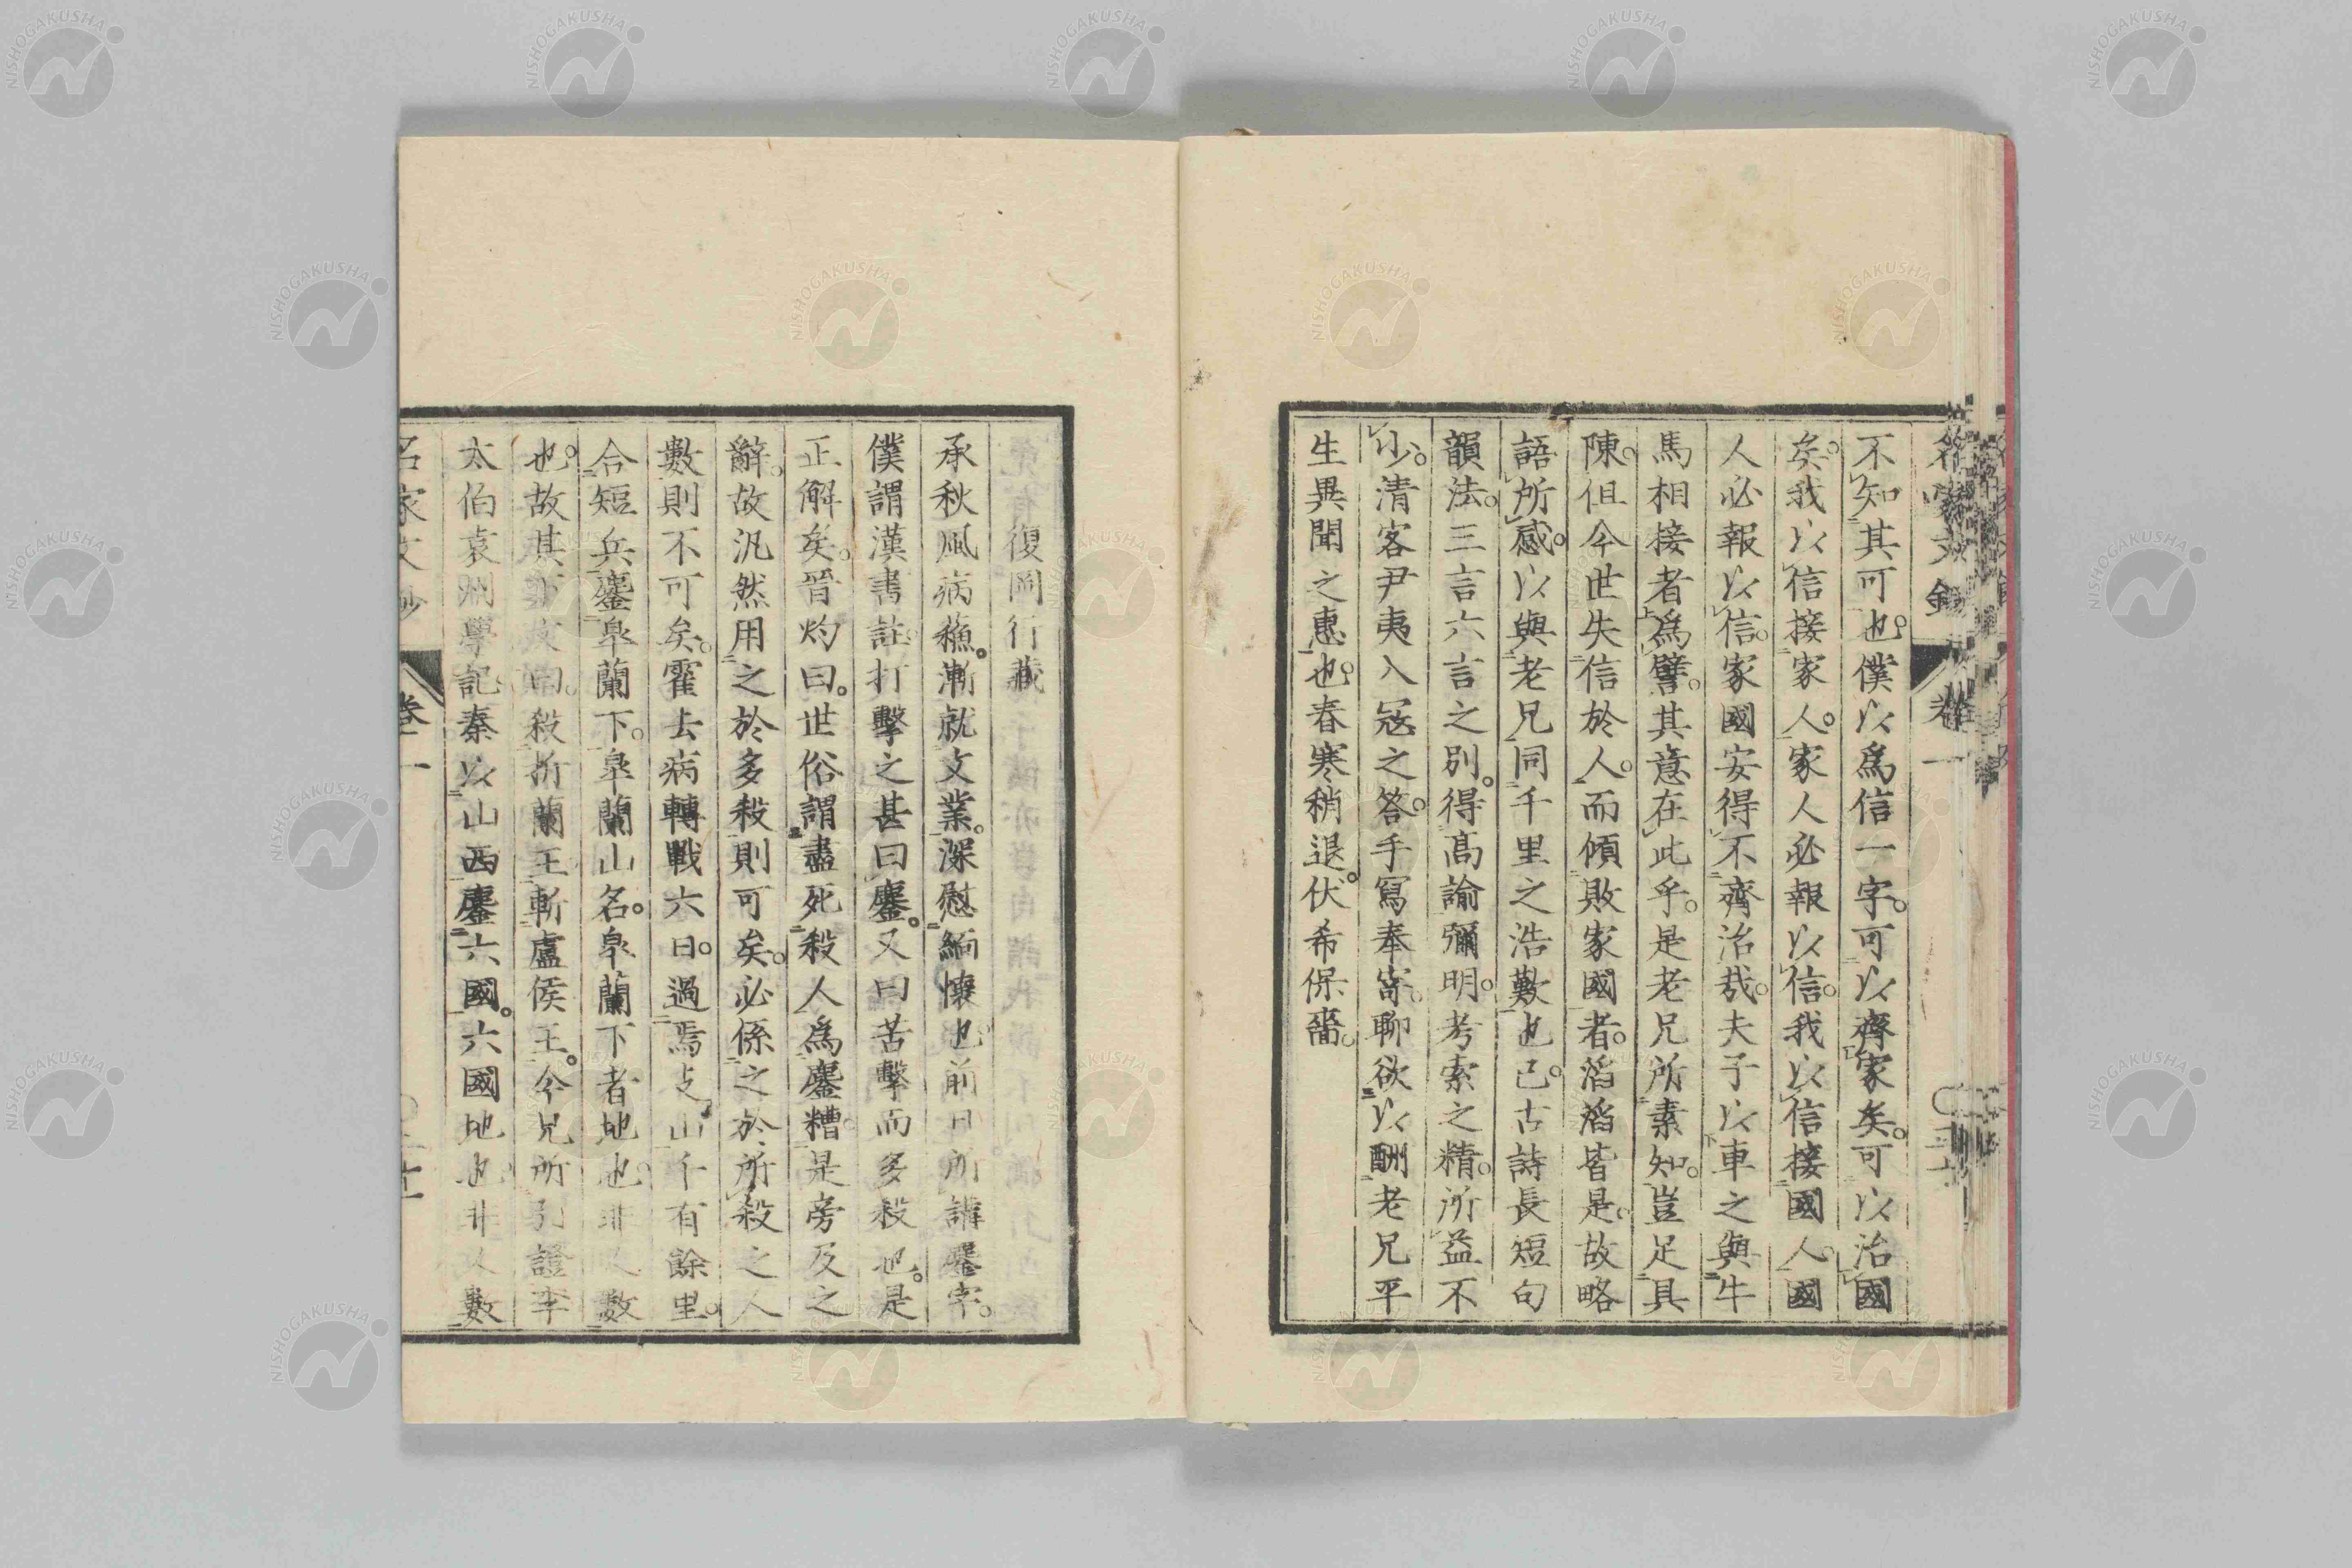 名家文鈔 卷一
不知其可也。僕以爲信一字。可以齊家矣。可以治國
矣。我以信接家人。家人必報以信。我以信接國人。國
人必報以信。家國安得不齊治哉。夫子以車之與牛
馬相接者爲譬。其意在此乎。是老兄所素知。豈足具
陳。但今世失信於人。而傾敗家國者。滔滔皆是。故略
語所感。以與老兄同千里之浩歎也已。古詩長短句
韻法。三言六言之別。得高諭彌明。考索之精。所益不
少。清客尹夷入寇之答。手寫奉寄。聊欲以酬老兄平
生異聞之惠也。春寒稍退。伏希保嗇。
復岡行藏
承秋風病蘓。漸就文業。深慰緬懷也。前日所講鏖字。
僕謂漢書註。打擊之甚曰鏖。又曰苦擊而多殺也。是
正解矣。晉灼曰。世俗謂盡死殺人爲鏖糟。是旁及之
辭。故汎然用之於多殺則可矣。必係之於所殺之人
數則不可矣。霍去病轉戰六日。過焉支山千有餘里。
合短兵鏖皐蘭下。皐蘭山名。皐蘭下者地也。非人數
也。故其下文曰。殺折蘭王。斬盧侯王。今兄所引證李
太伯袁州學記。秦以山西鏖六國。六國地也。非人數
名家文鈔 卷一
NISHOGAKUSHA